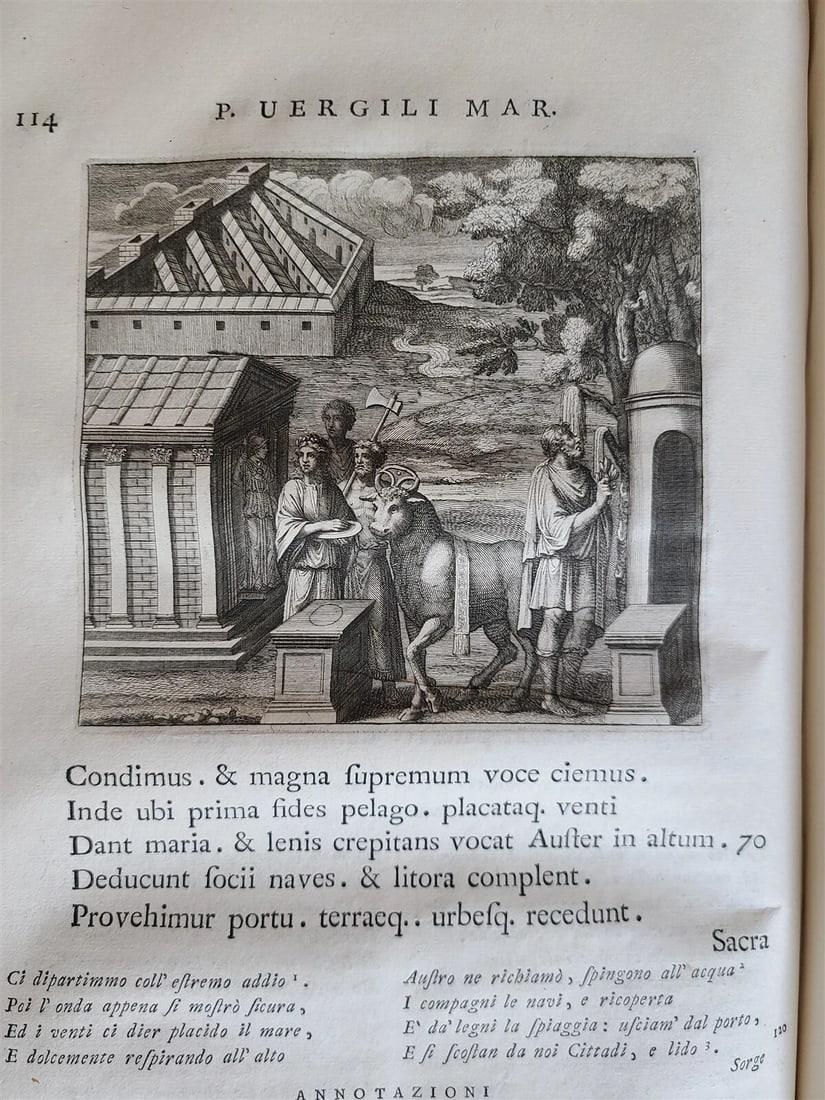 114
P. UERGILI MAR.
Condimus. & magna ſupremum voce ciemus.
Inde ubi prima fides pelago. placataq. venti
Dant maria. & lenis crepitans vocat Auſter in altum. 70
Deducunt ſocii naves. & litora complent.
Provehimur portu. terraeq.. urbeſq. recedunt.
Sacra
Ci dipartimmo coll' eſtremo addio ¹.
Poi l' onda appena ſi moſtrò ſicura,
Ed i venti ci dier placido il mare,
E dolcemente reſpirando all' alto
Auſtro ne richiamò, ſpingono all' acqua ²
I compagni le navi, e ricoperta
E' da' legni la ſpiaggia: uſciam' dal porto, 120
E ſi ſcoſtan da noi Cittadi, e lido ³.
Sorge
ANNOTAZIONI